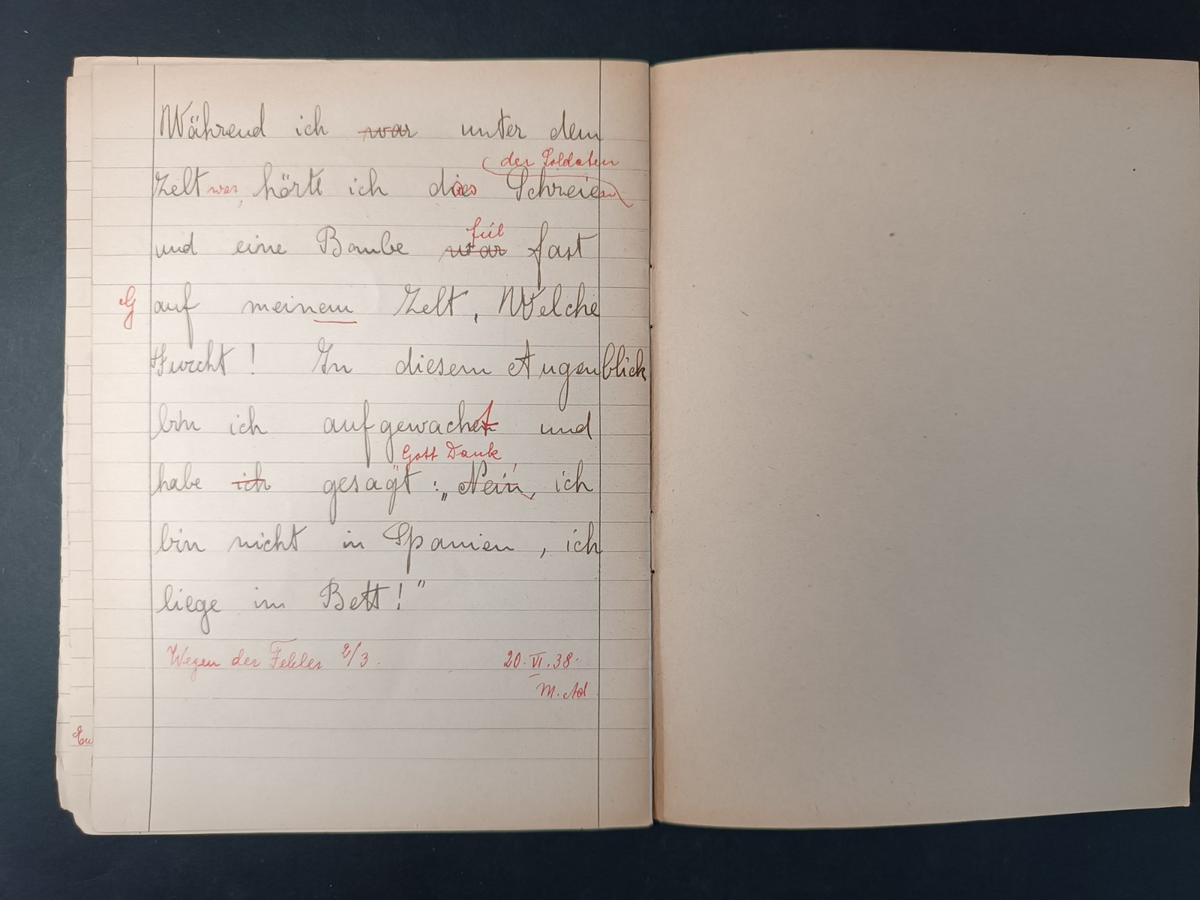 Während ich war unter dem
der Soldaten
Zelt war, hörte ich das Schreien
fiel
und eine Bombe war fast
G auf meinem Zelt, Welche
Furcht! In diesem Augenblick
bin ich aufgewacht und
Gott Dank
habe ich gesagt: „Nein, ich
bin nicht in Spanien, ich
liege im Bett!"
Wegen der Fehler 2/3.
20.VI.38.
M. Ad